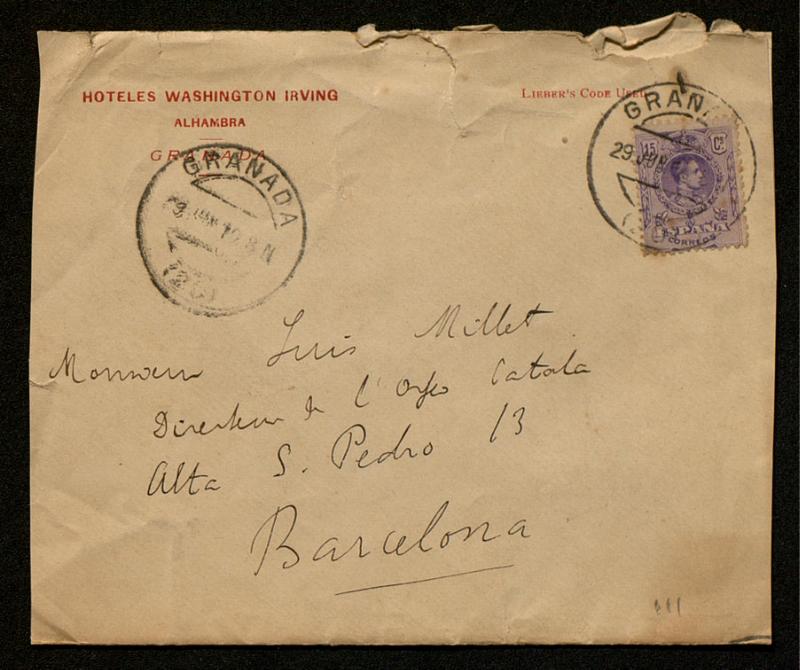 HOTELES WASHINGTON IRVING
ALHAMBRA
GRANADA
LIEBER'S CODE USED
GRANADA
29 JUN
15 Cs
ESPAÑA
CORREOS
GRANADA
JUN 10 8 N
Monsieur Luis Millet
Directeur de l'Orfeo Catala
Alta S. Pedro 13
Barcelona